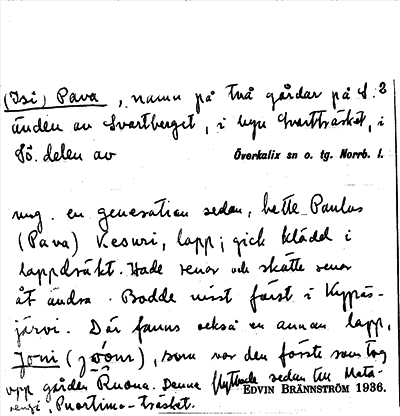 (Isi) Pava, namn på två gårdar på S. 2
änden av Svartberget, i byn Svartträsket, i
Sö. delen av Överkalix sn o. tg. Norrb. l.
ung. en generation sedan, hette Paulus
(Pava) Kesuri, lapp; gick klädd i
lappdräkt. Hade renar och skötte renar
åt andra. Bodde visst först i Kypäs-
järvi. Där fanns också en annan lapp,
Joni, som var den förste som tog
upp gården Ruona. Denne flyttade sedan till Mata-
rengi, Puortimo-träsket.
EDVIN BRÄNNSTRÖM 1936.